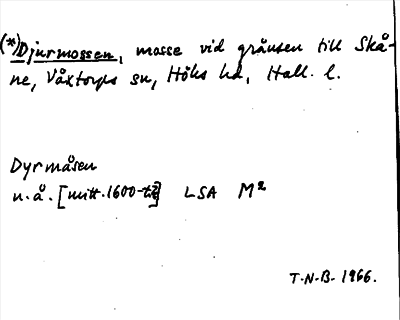 (*)Djurmossen, mosse vid gränsen till Skå-
ne, Våxtorps sn, Höks hd, Hall. l.
Dyrmåsen
u.å. [mitt.1600-t:s] LSA M²
T.N.B. 1966.